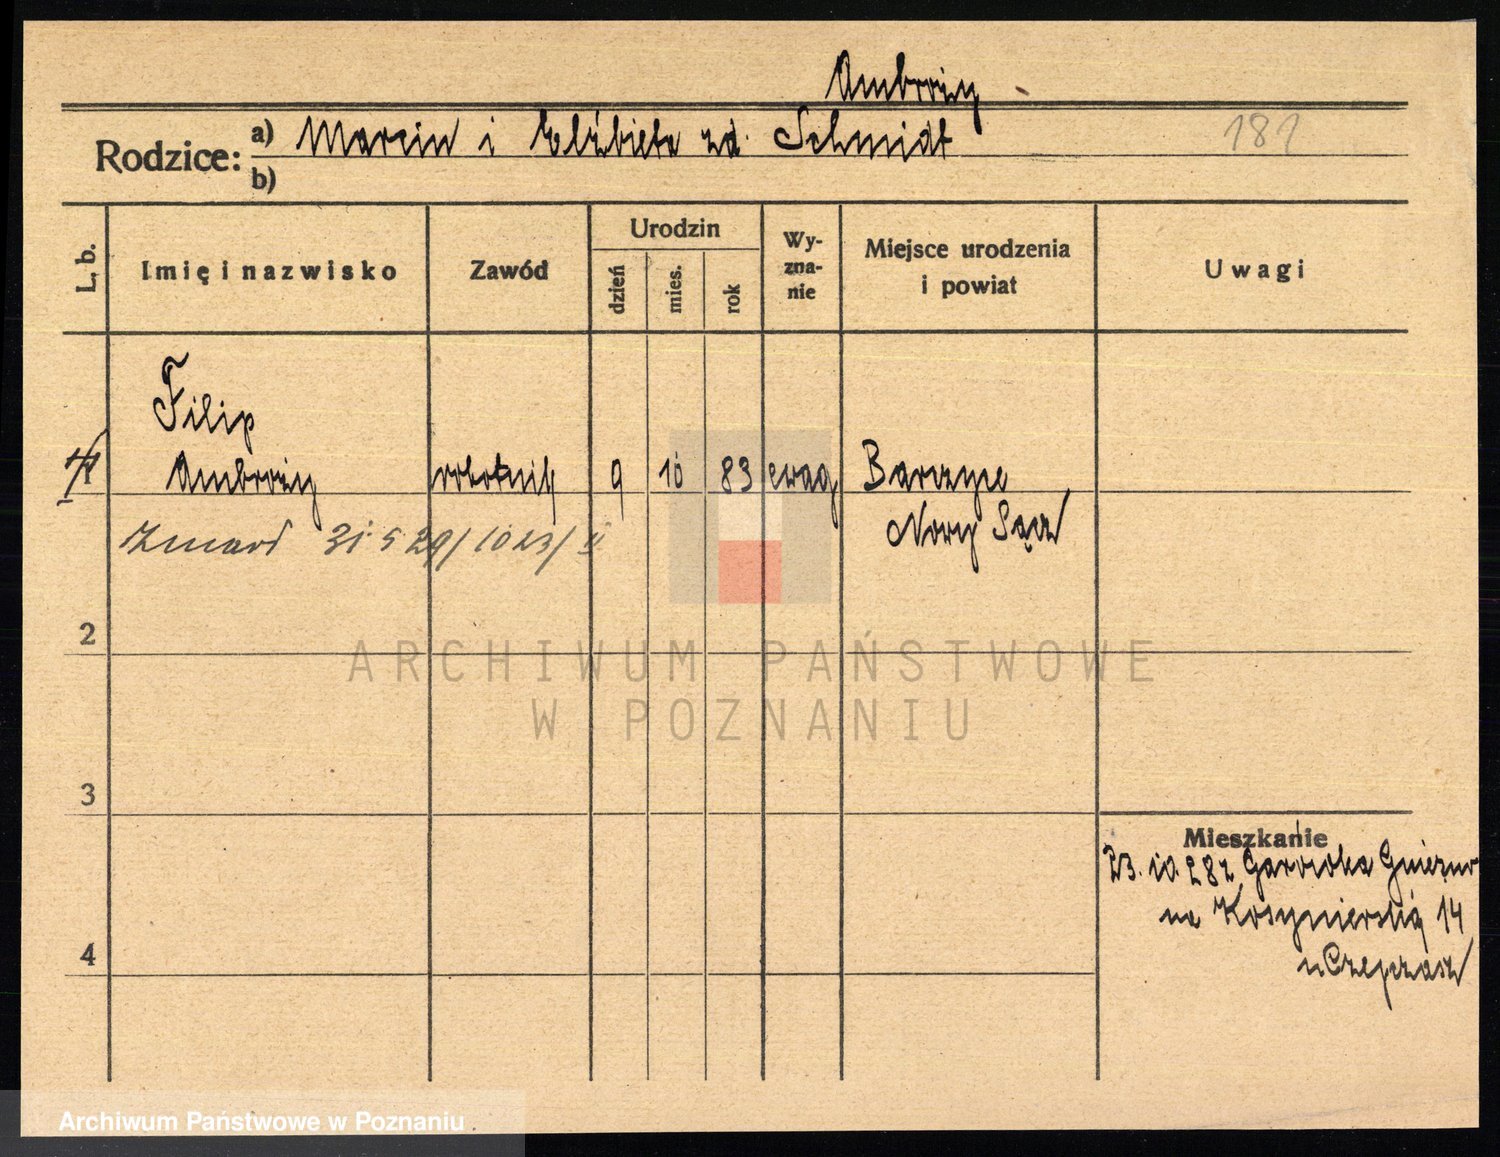 Ambroży
Rodzice: a) Marcin i Elżbieta zd. Schmidt
181
b)
L. b.
Imię i nazwisko
Zawód
Urodzin
dzień
mies.
rok
Wy-
zna-
nie
Miejsce urodzenia
i powiat
Uwagi
Filip
1 Ambroży robotnik 9 10 83 ewag Barczyce
Nowy Sącz
Zmarł 31 5 29/1023/II
2
ARCHIWUM PAŃSTWOWE
W POZNANIU
3
Mieszkanie
23. 10. 28 z Gniezno
na Kosynierską 14
4
Archiwum Państwowe w Poznaniu